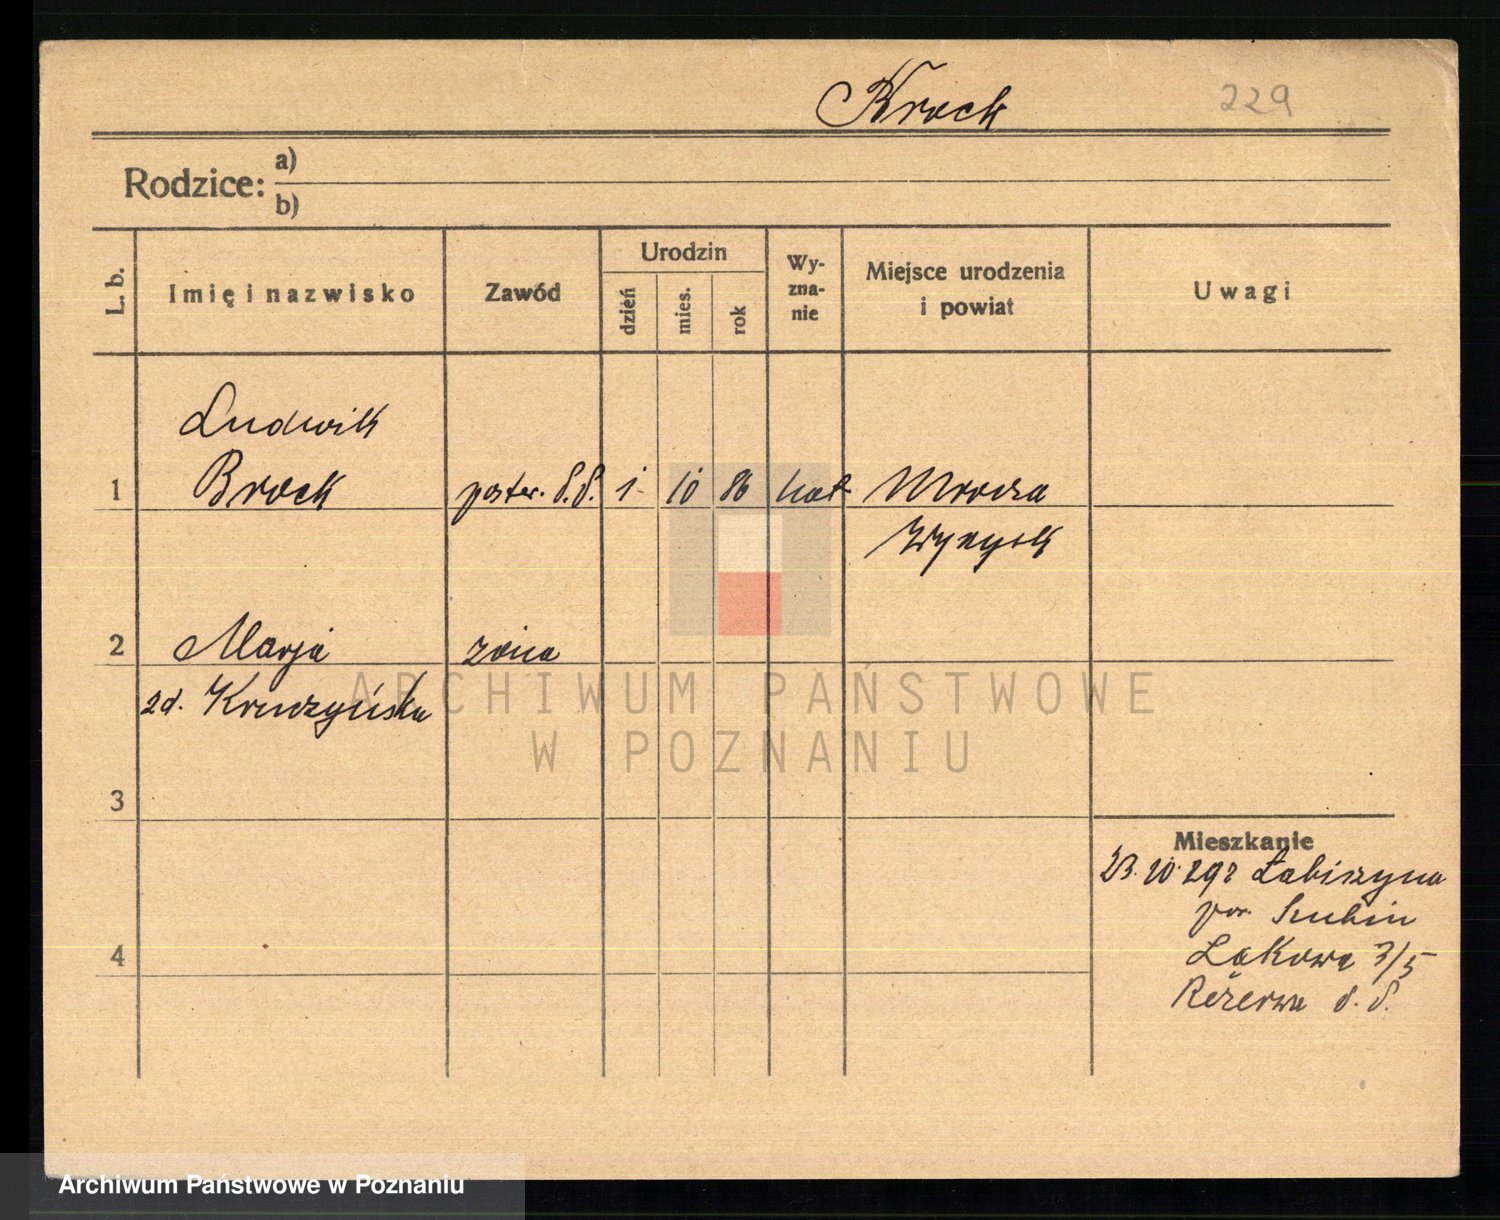 Brock 229
Rodzice: a)
b)
L. b. Imię i nazwisko Zawód Urodzin dzień mies. rok Wy-zna-nie Miejsce urodzenia i powiat Uwagi
Ludwik
1 Brock poster. P.P. 1 10 86 kat Mrocza
Wyrzysk
2 Marja żona
zd. Kruszyńska
ARCHIWUM PAŃSTWOWE
W POZNANIU
3
Mieszkanie
23.10.29 z Łabiszyna
pow. Szubin
4 Łąkowa 3/5
Rezerwa P.P.
Archiwum Państwowe w Poznaniu